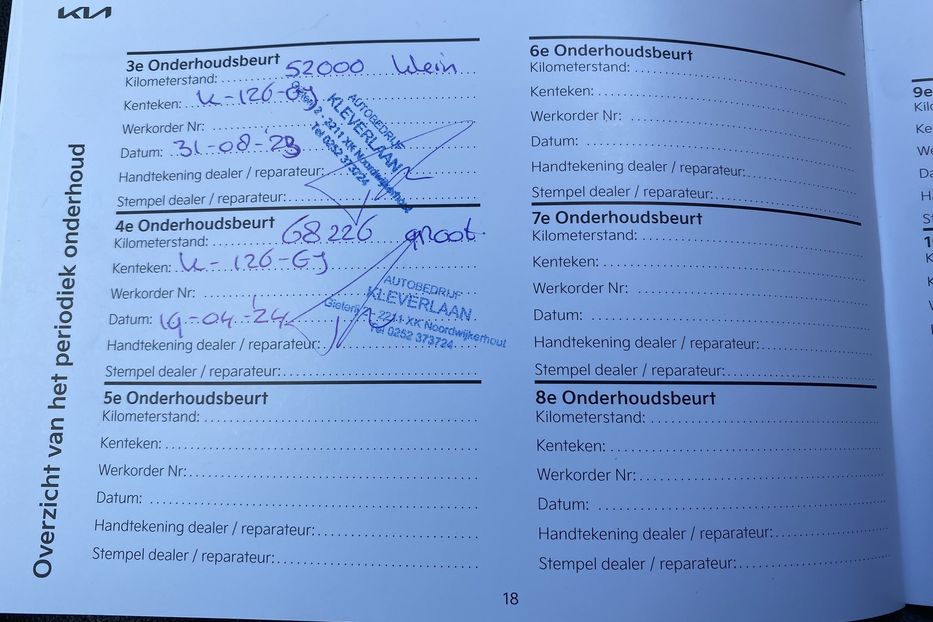 KIA
Overzicht van het periodiek onderhoud
3e Onderhoudsbeurt
Kilometerstand: 52000 klein
Kenteken: K-126-GJ
Werkorder Nr:
Datum: 31-08-23
Handtekening dealer / reparateur:
Stempel dealer / reparateur:
AUTOBEDRIJF
KLEVERLAAN
2211 XK Noordwijkerhout
Tel 0252 373724
4e Onderhoudsbeurt
Kilometerstand: 68226 groot
Kenteken: K-126-GJ
Werkorder Nr:
Datum: 19-04-24
Handtekening dealer / reparateur:
Stempel dealer / reparateur:
AUTOBEDRIJF
KLEVERLAAN
2211 XK Noordwijkerhout
Tel 0252 373724
5e Onderhoudsbeurt
Kilometerstand:
Kenteken:
Werkorder Nr:
Datum:
Handtekening dealer / reparateur:
Stempel dealer / reparateur:
6e Onderhoudsbeurt
Kilometerstand:
Kenteken:
Werkorder Nr:
Datum:
Handtekening dealer / reparateur:
Stempel dealer / reparateur:
7e Onderhoudsbeurt
Kilometerstand:
Kenteken:
Werkorder Nr:
Datum:
Handtekening dealer / reparateur:
Stempel dealer / reparateur:
8e Onderhoudsbeurt
Kilometerstand:
Kenteken:
Werkorder Nr:
Datum:
Handtekening dealer / reparateur:
Stempel dealer / reparateur:
18
9e